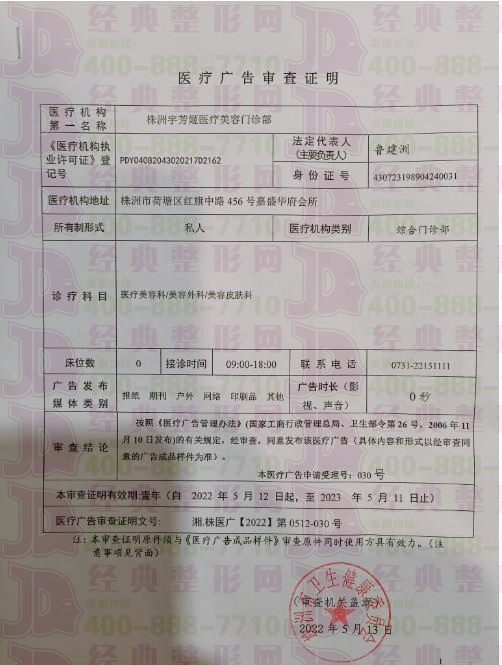 医疗广告审查证明
医疗机构
第一名称
株洲宇芳姬医疗美容门诊部
《医疗机构执
业许可证》登
记号
PDY04082043020217D2162
法定代表人
(主要负责人)
鲁建洲
身份证号
430723198904240031
医疗机构地址
株洲市荷塘区红旗中路 456 号嘉盛华府会所
所有制形式
私人
医疗机构类别
综合门诊部
诊疗科目
医疗美容科/美容外科/美容皮肤科
床位数
0
接诊时间
09:00-18:00
联系电话
0731-22151111
广告发布
媒体类别
报纸 期刊 户外 网络 印刷品 其他
广告时长（影
视、声音）
0 秒
审查结论
按照《医疗广告管理办法》(国家工商行政管理总局、卫生部令第 26 号，2006 年 11
月 10 日发布)的有关规定，经审查，同意发布该医疗广告（具体内容和形式以经审查同
意的广告成品样件为准）。
本医疗广告申请受理号: 030 号
本审查证明有效期:壹年（自 2022 年 5 月 12 日起，至 2023 年 5 月 11 日止）
医疗广告审查证明文号: 湘.株医广【2022】第 0512-030 号
注: 本审查证明原件须与《医疗广告成品样件》审查原件同时使用方具有效力。（注
意事项见背面）
(审查机关盖章)
2022 年 5 月 13 日
株洲市卫生健康委员会
经典整形网
400-888-7710